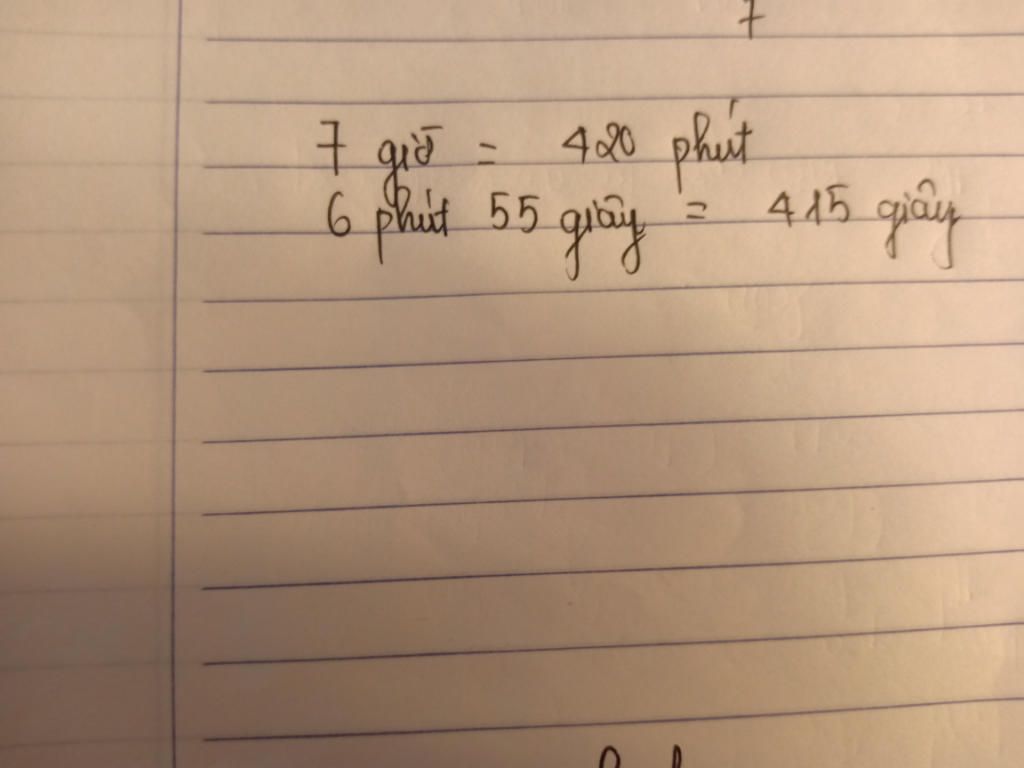 7
7 giờ = 420 phút
6 phút 55 giây = 415 giây